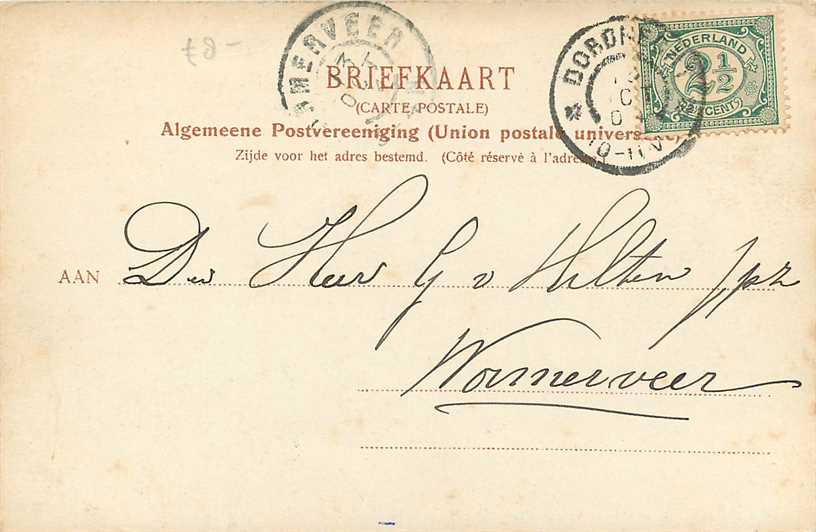 7.9-
WORMERVEER
BRIEFKAART
(CARTE POSTALE)
Algemeene Postvereeniging (Union postale universelle)
Zijde voor het adres bestemd. (Côté réservé à l'adresse)
DORDRECHT
10-11V
NEDERLAND
2½
2½ CENT
AAN Den Heer G v Hilten Jpz
Wormerveer